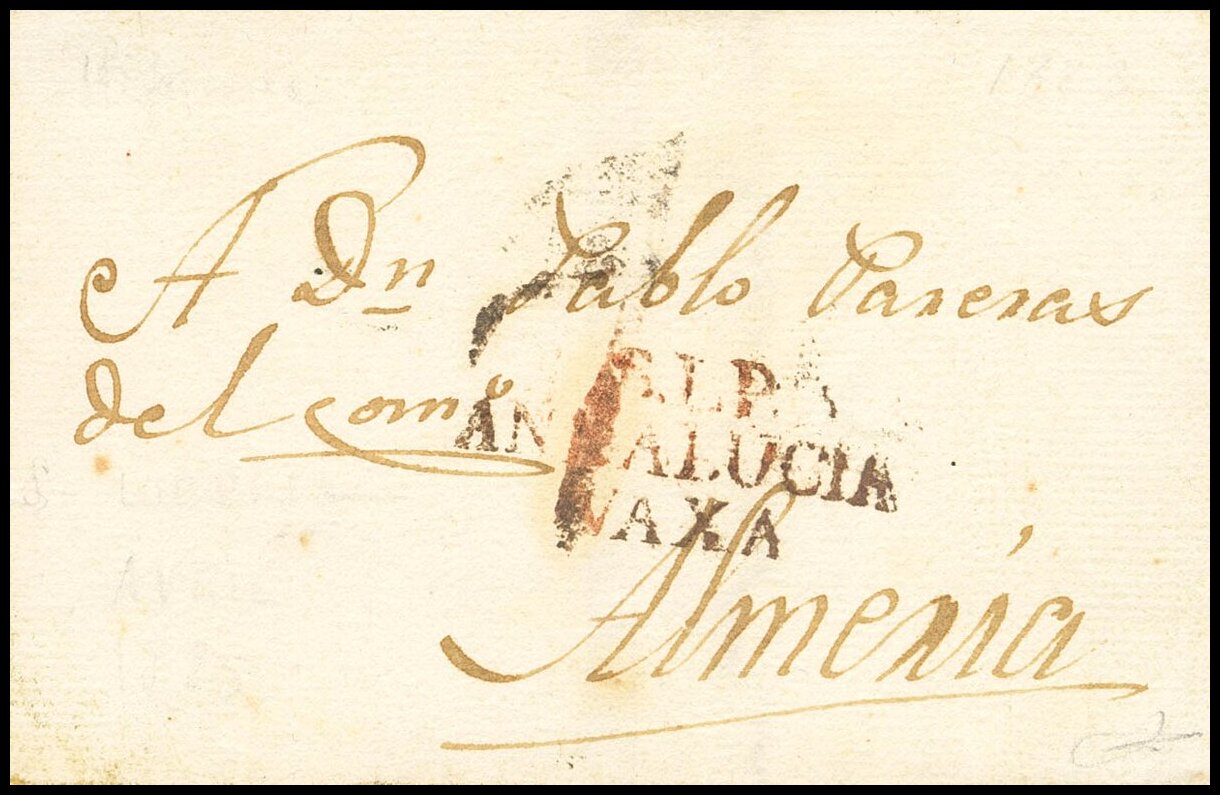 A Dn Pablo Pareras
del Comº
ANDALUCIA
VAXA
Almeria